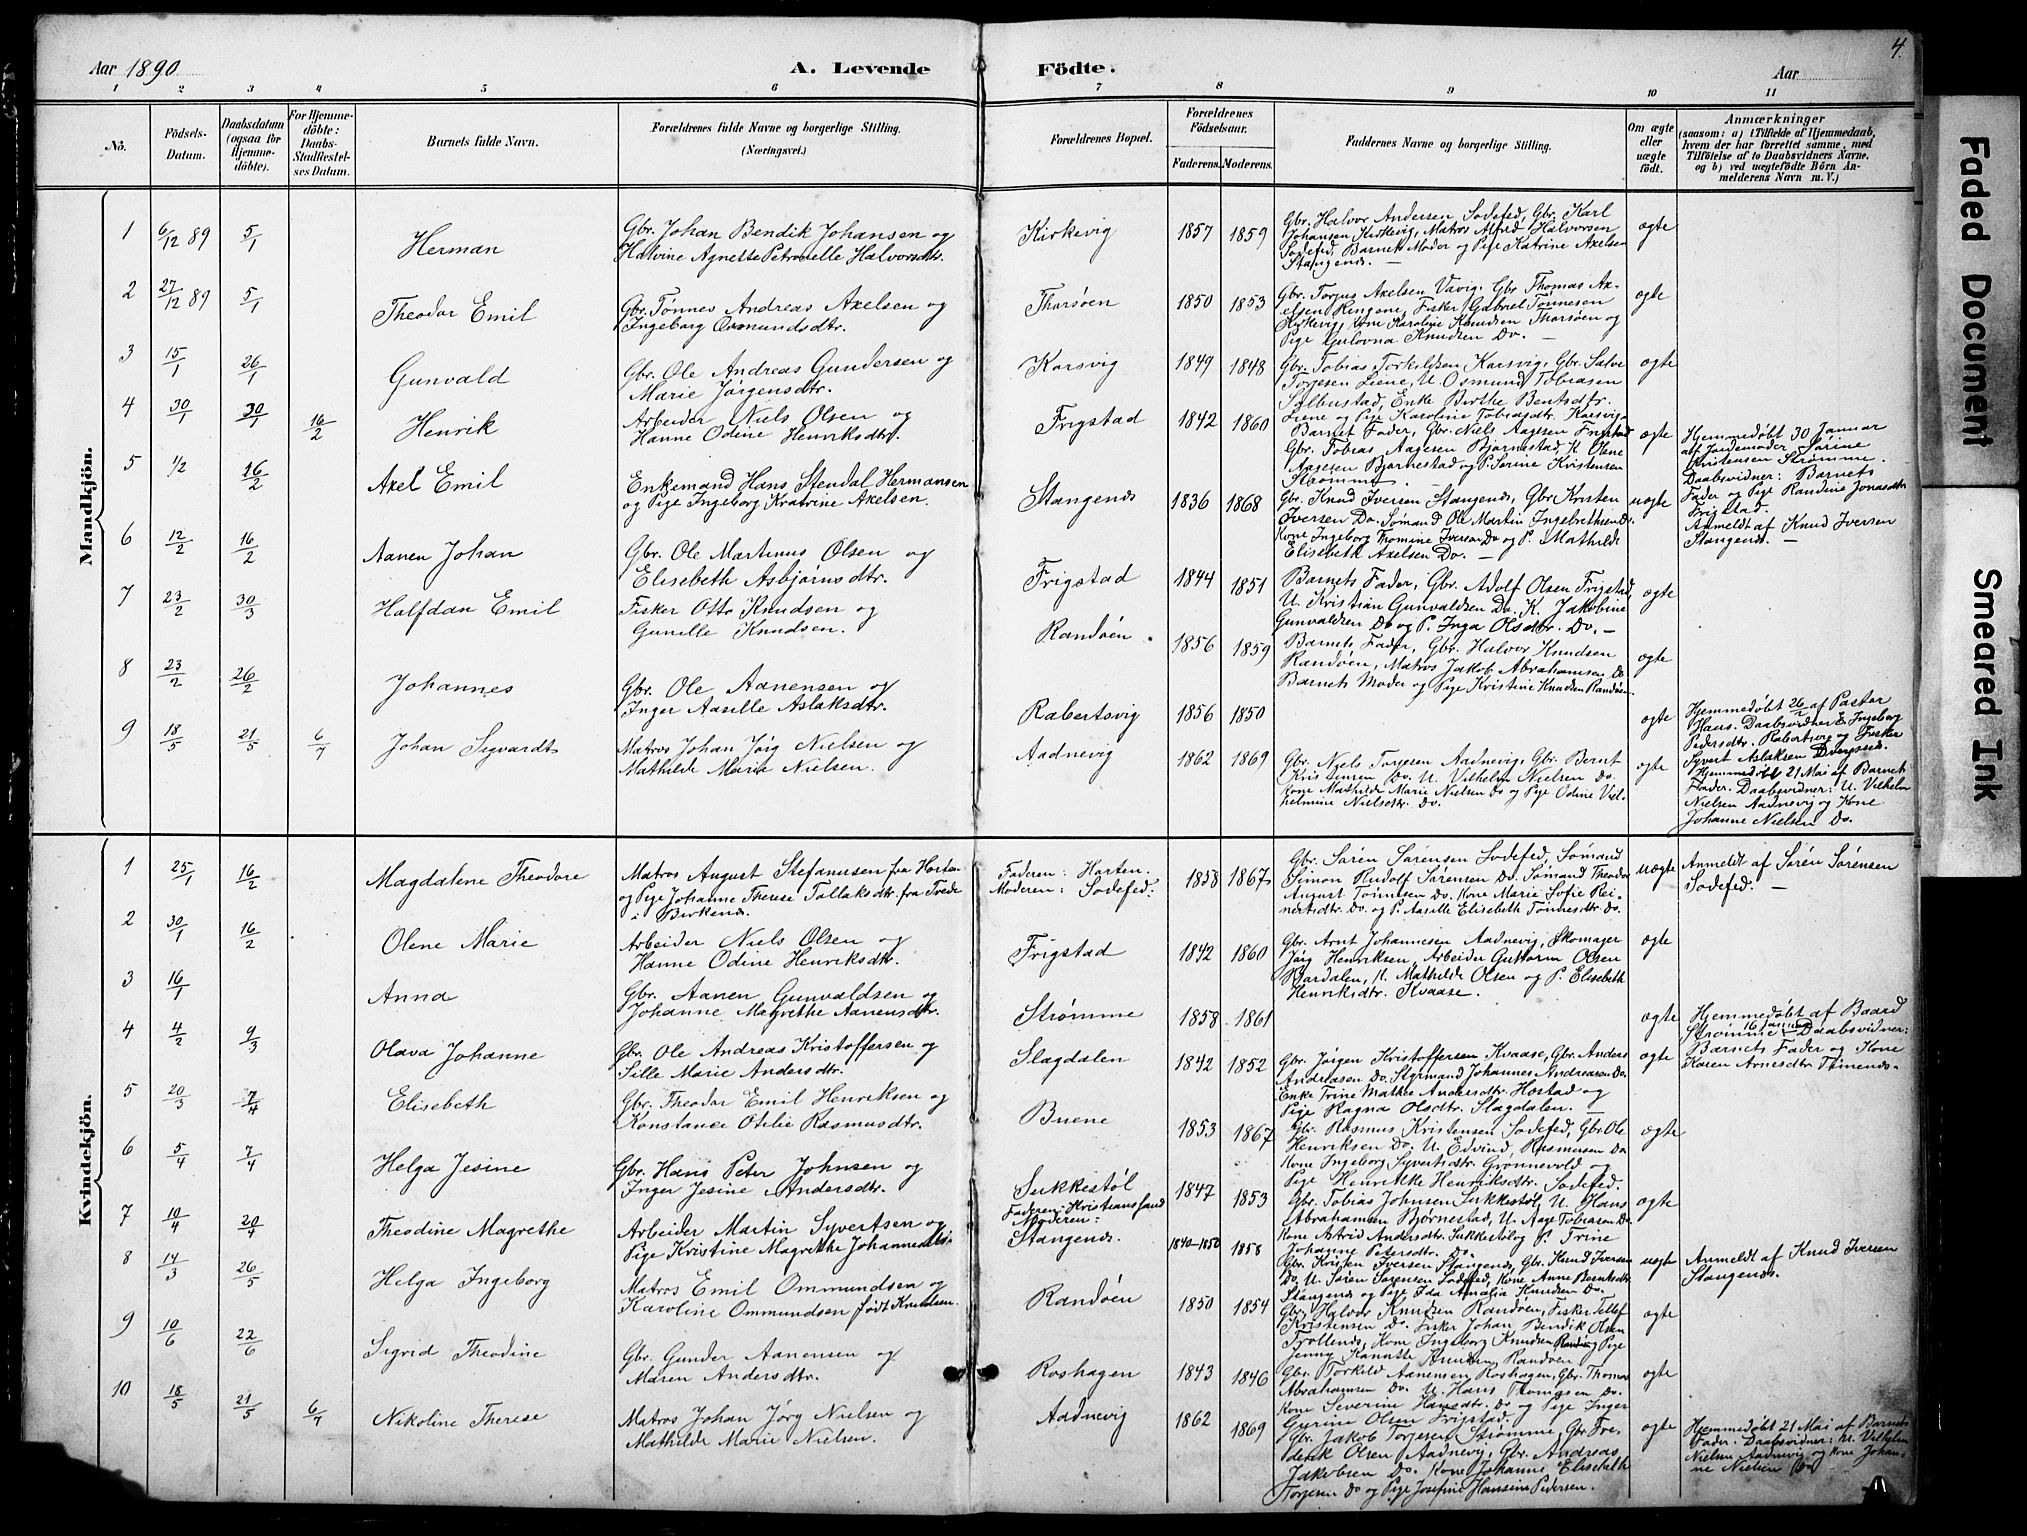 Aar 1890
A. Levende Födte.
Aar
4.
1 2 3 4 5 6 7 8 9 10 11
No.
Födsels-Datum.
Daabsdatum (ogsaa for Hjemmedöbte).
For Hjemmedöbte: Daabs-Stadfestelses Datum.
Barnets fulde Navn.
Forældrenes fulde Navne og borgerlige Stilling. (Næringsvei.)
Forældrenes Bopæl.
Forældrenes Födselsaar.
Faderens. Moderens.
Faddernes Navne og borgerlige Stilling.
Om ægte eller uægte födt.
Anmærkninger
(saasom: a) i Tilfælde af Hjemmedaab, hvem der har forrettet samme, med Tilföielse af to Daabsvidners Navne. og b) ved uægtefödte Börn Anmelderens Navn m. V.)
Mandkjön.
1 6/12 89 5/1 Herman
Gbr. Johan Bendik Johansen og
Halvine Agnette Petronelle Halvorsdtr.
Kirkevig 1857 1859
Gbr. Halvor Andersen Sodefed, Gbr. Karl
Johansen Kirkevig, Matros Alfred Halvorsen
Sodefed, Barnets Moder og Pige Katrine Axelsen
Stangenes. —
ægte
2 27/12 89 5/1 Theodor Emil
Gbr. Tønnes Andreas Axelsen og
Ingeborg Osmundsdtr.
Tharsøen 1850 1853
Gbr. Torjus Axelsen Vavig, Gbr Thomas Ax-
elsen Ringene, Fisker Gabriel Tønnesen
Kirkevig, Kone Karoline Knudsen Tharsøen og
Pige Gulovna Knudsen Do. —
ægte
3 15/1 26/1 Gunvald
Gbr. Ole Andreas Gundersen og
Marie Jørgensdtr.
Korsvig 1849 1848
Gbr. Tobias Torkildsen Karsvig, Gbr. Salve
Torjesen Liene, U. Osmund Tobiasen
Sølbustad, Enke Birthe Bentsdtr.
Liene og Pige Karoline Tobiasdtr. Karsvig.
ægte
4 30/1 30/1 16/2 Henrik
Arbeider Niels Olsen og
Hanne Odine Henriksdtr.
Frigstad 1842 1860
Barnets Fader, Gbr. Niels Aagesen Frigstad
Gbr. Tobias Aagesen Bjørnestad, K Olene
Aagesen Bjørnestad og P. Sørine Kristensen
Strømme.
ægte
Hjemmedøbt 30 Januar
af Jordemoder Sørine
Kristensen Strømme.
Daabsvidner: Barnets
Fader og Pige Randine Jonasdtr
Frigstad.
5 1/2 16/2 Axel Emil
Enkemand Hans Stendal Hermansen
og Pige Ingeborg Kratrine Axelsen.
Stangenes 1836 1868
Gbr. Knud Iversen Stangenes, Gbr Kristen
Iversen Do. Sømand Ole Martin Ingebrethsen Do.
Kone Ingeborg Thomine Iversen Do og P. Mathilde
Elisebeth Axelsen Do. —
uægte
Anmeldt af Knud Iversen
Stangenes. —
6 12/2 16/2 Aanen Johan
Gbr. Ole Martinus Olsen og
Elisebeth Asbjørnsdtr.
Frigstad 1844 1851
Barnets Fader, Gbr. Adolf Olsen Frigstad,
U. Kristian Gunvaldsen Do. K. Jakobine
Gunvaldsen Do og P. Inga Olsdtr. Do. —
ægte
7 23/2 30/3 Halfdan Emil
Fisker Otto Knudsen og
Gunille Knudsen.
Randøen. 1856 1859
Barnets Fader, Gbr. Halvor Knudsen
Randøen, Matros Jakob Abrahamsen Do
Barnets Moder og Pige Kristine Knudsen Randøen.
ægte
8 23/2 26/2 Johannes
Gbr. Ole Aanensen og
Inger Aasille Aslaksdtr.
Rabertsvig 1856 1850
ægte
Hjemmedøbt 26/2 af Pastor
Hans. Daabsvidner E. Ingeborg
Pedersdtr. Robertsvig og Fisker
Syvert Aslaksen
9 18/5 21/5 6/7 Johan Sigvardt
Matros Johan Jörg Nielsen og
Mathilde Marie Nielsen.
Aadnevig 1862 1869
Gbr. Niels Torjesen Aadnevig, Gbr. Bernt
Kristensen Do. U. Vilhelm Nielsen Do.
Kone Mathilde Marie Nielsen Do og Pige Odine Vil-
helmine Nielsdtr. Do.
ægte
Hjemmedøbt 21 Mai af Barnets
Fader. Daabsvidner: U. Vilhelm
Nielsen Aadnevig og Kone
Johanne Nielsen Do.
Kvindekjön.
1 25/1 16/2 Magdalene Theodore
Matros August Stefanusen fra Horten
og Pige Johanne Therese Tallaksdtr. fra Tvede
i Birkenes.
Faderen: Horten.
Moderen: Sodefed. 1858 1867
Gbr. Søren Sørensen Sodefed, Sømand
Simon Rudolf Sørensen Do. Sømand Theodor
August Tønnesen Do. Kone Marie Sofie Rei-
nertsdtr. Do. og P. Aasille Elisebeth Tønnesdtr. Do.
uægte
Anmeldt af Søren Sørensen
Sodefed. —
2 30/1 16/2 Olene Marie
Arbeider Niels Olsen og
Hanne Odine Henriksdtr.
Frigstad 1842 1860
Gbr. Arnt Johannesen Aadnevig, Skomager
Jörg Henriksen, Arbeider Guttorm Olsen
Bardalen, K. Mathilde Olsen og P. Elisebeth
Henriksdtr. Kvaase.
ægte
3 16/1 Anna
Gbr. Aanen Gunvaldsen og
Johanne Magrethe Aanensdtr.
Strømme 1858. 1861
ægte
Hjemmedøbt af Baard
Strømme 16 Januar Daabsvidner:
Barnets Fader og Kone
Karen Arnesdtr
4 4/2 9/3 Olava Johanne
Gbr. Ole Andreas Kristoffersen og
Sille Marie Andersdtr.
Slagdalen 1842 1852
Gbr. Jørgen Kristoffersen Kvaase, Gbr. Anders
Andreasen Do. Styrmand Johannes Andreasen Do.
Enke Trine Mathea Andersdtr. Hostad og
Pige Ragna Olsdtr. Slagdalen. —
ægte
5 20/3 7/4 Elisebeth
Gbr. Theodor Emil Henriksen og
Konstance Otilie Rasmusdtr.
Buene 1853 1867
Gbr. Rasmus Kristensen Sodefed, Gbr. Ole
Henriksen Do. U. Edvind Rasmusen Do
Kone Ingeborg Syvertsdtr. Grønnevold og
Pige Henrikke Henriksdtr. Sodefed.
ægte
6 5/4 7/4 Helga Jesine
Gbr. Hans Peter Johnsen og
Inger Jesine Andersdtr.
Sukkestøl 1847 1853
Gbr. Tobias Johnsen Sukkestøl, U. Hans
Abrahamsen Bjørnestad, U. Aage Tobiasen Do.
Kone Astrid Andersdtr. Sukkestøl og P. Trine
Johanne Petersdtr. Do.
ægte
7 10/4 20/4 Theodine Magrethe
Arbeider Martin Syvertsen og
Pige Kristine Magrethe Johannesdtr.
Faderen: Kristianssand
Moderen:
Stangenes. 1840-1850 1858
Gbr. Kristen Iversen Stangenes, Gbr. Knud Iversen
Do. U. Søren Sørensen Sodefed, Kone Anne Berntsdtr.
Stangenes og Pige Ida Amalia Knudsen Do.
uægte
Anmeldt af Knud Iversen
Stangenes.
8 14/3 26/5 Helga Ingeborg
Matros Emil Ommundsen og
Karoline Ommundsen født Knudsen.
Randøen 1850 1854
Gbr. Halvor Knudsen Randøen, Fisker Tellef
Kristensen Do. Fisker Johan Bendik Olsen
Trollenes, Kone Ingeborg Knudsen Randøen, Pige
Jenny Knudsen Randøen
ægte
9 10/6 22/6 Sigrid Theodine
Gbr. Gunder Aanensen og
Maren Andersdtr.
Roshagen 1843 1846
Gbr. Torkild Aanensen Roshagen, Gbr. Thomas
Abrahamsen Do. U. Hans Thomasen Do.
Kone Severine Hansdtr. Do og Pige Inger
Gurine Olsen Frigstad.
ægte
10 18/5 21/5 6/7 Nikoline Therese
Matros Johan Jörg Nielsen og
Mathilde Marie Nielsen.
Aadnevig 1862 1869
Gbr. Jakob Torjesen Strømme, Gbr. Fre-
derik Olsen Aadnevig, Gbr. Andreas
Jakobsen Do. Kone Johanne Elisebeth
Torjesen Do og Pige Josefine Hansine Pedersen.
ægte
Hjemmedøbt 21 Mai af Barnets
Fader. Daabsvidner: U. Vilhelm
Nielsen Aadnevig og Kone Johan-
ne Nielsen Do
Faded Document
Smeared Ink